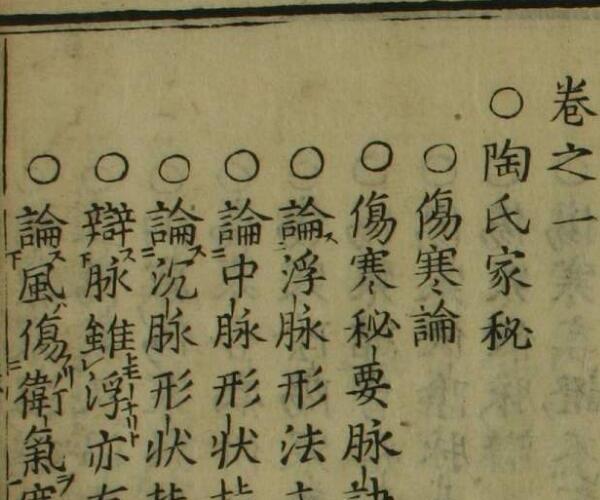 卷之一
○陶氏家秘
○傷寒論
○傷寒秘要脉訣
○論浮脉形法
○論中脉形状
○論沉脉形状
○辯脉雖浮亦有
○論風傷衛氣寒